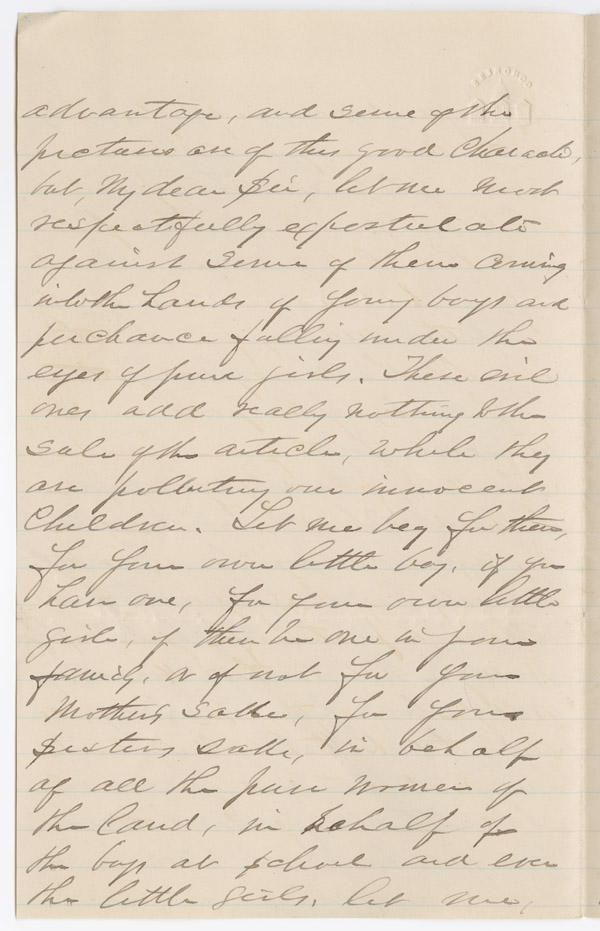 advantage, and some of the
pictures are of this good Character,
but, My dear Sir, let me most
respectfully expostulate
against some of them coming
into the hands of young boys and
perchance falling under the
eyes of pure girls. These evil
ones add really nothing to the
sale of the article, while they
are polluting our innocent
Children. Let me beg for them,
for your own little boy, if you
have one, for your own little
girls, if there be one in your
family, or if not for your
Mothers sake, for your
Sisters sake, in behalf
of all the pure women of
the land, in behalf of
the boys at school and even
the little girls, let me,